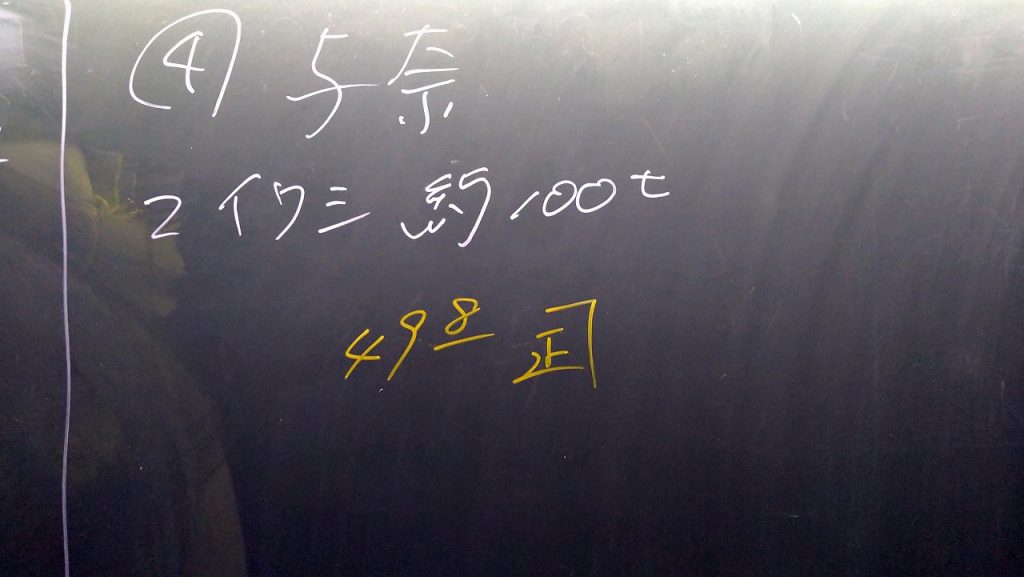 ④ 与奈
2 イワシ 約100t
498